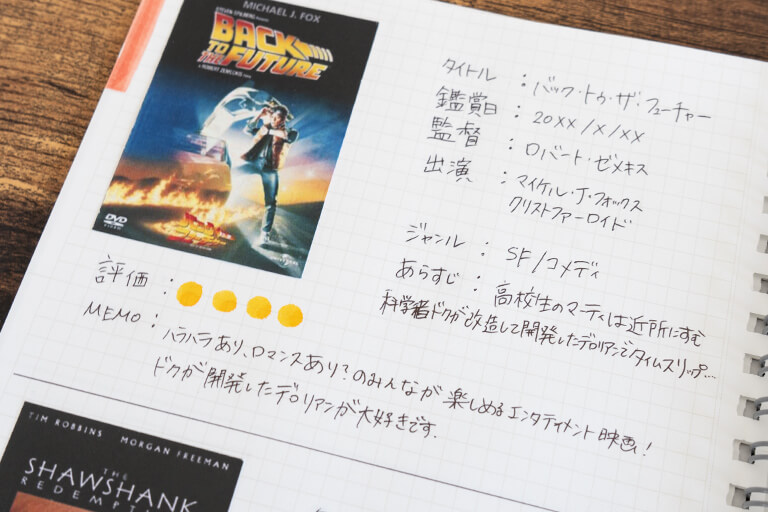 MICHAEL J. FOX
STEVEN SPIELBERG Presents
BACK
TO THE
FUTURE
A ROBERT ZEMECKIS
DVD
VIDEO
UNIVERSAL
タイトル : バック・トゥ・ザ・フューチャー
鑑賞日 : 20XX/X/XX
監督 : ロバート・ゼメキス
出演 : マイケル・J・フォックス
クリストファーロイド
ジャンル : SF/コメディ
あらすじ : 高校生のマーティは近所にすむ
科学者ドクが改造して開発したデロリアンでタイムスリップ…
評価 :
MEMO : ハラハラあり、ロマンスあり?のみんなが楽しめるエンタティメント映画!
ドクが開発したデロリアンが大好きです.
TIM ROBBINS MORGAN FREEMAN
THE
SHAWSHANK